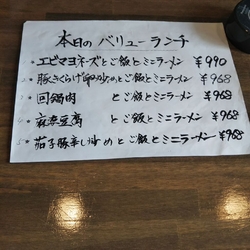 本日の バリューランチ
*エビマヨネーズとご飯とミニラーメン ¥990
*豚きくらげ卵炒めとご飯とミニラーメン ¥968
*回鍋肉 とご飯とミニラーメン ¥968
*麻婆豆腐 とご飯とミニラーメン ¥968
*茄子豚辛し炒めとご飯とミニラーメン ¥968